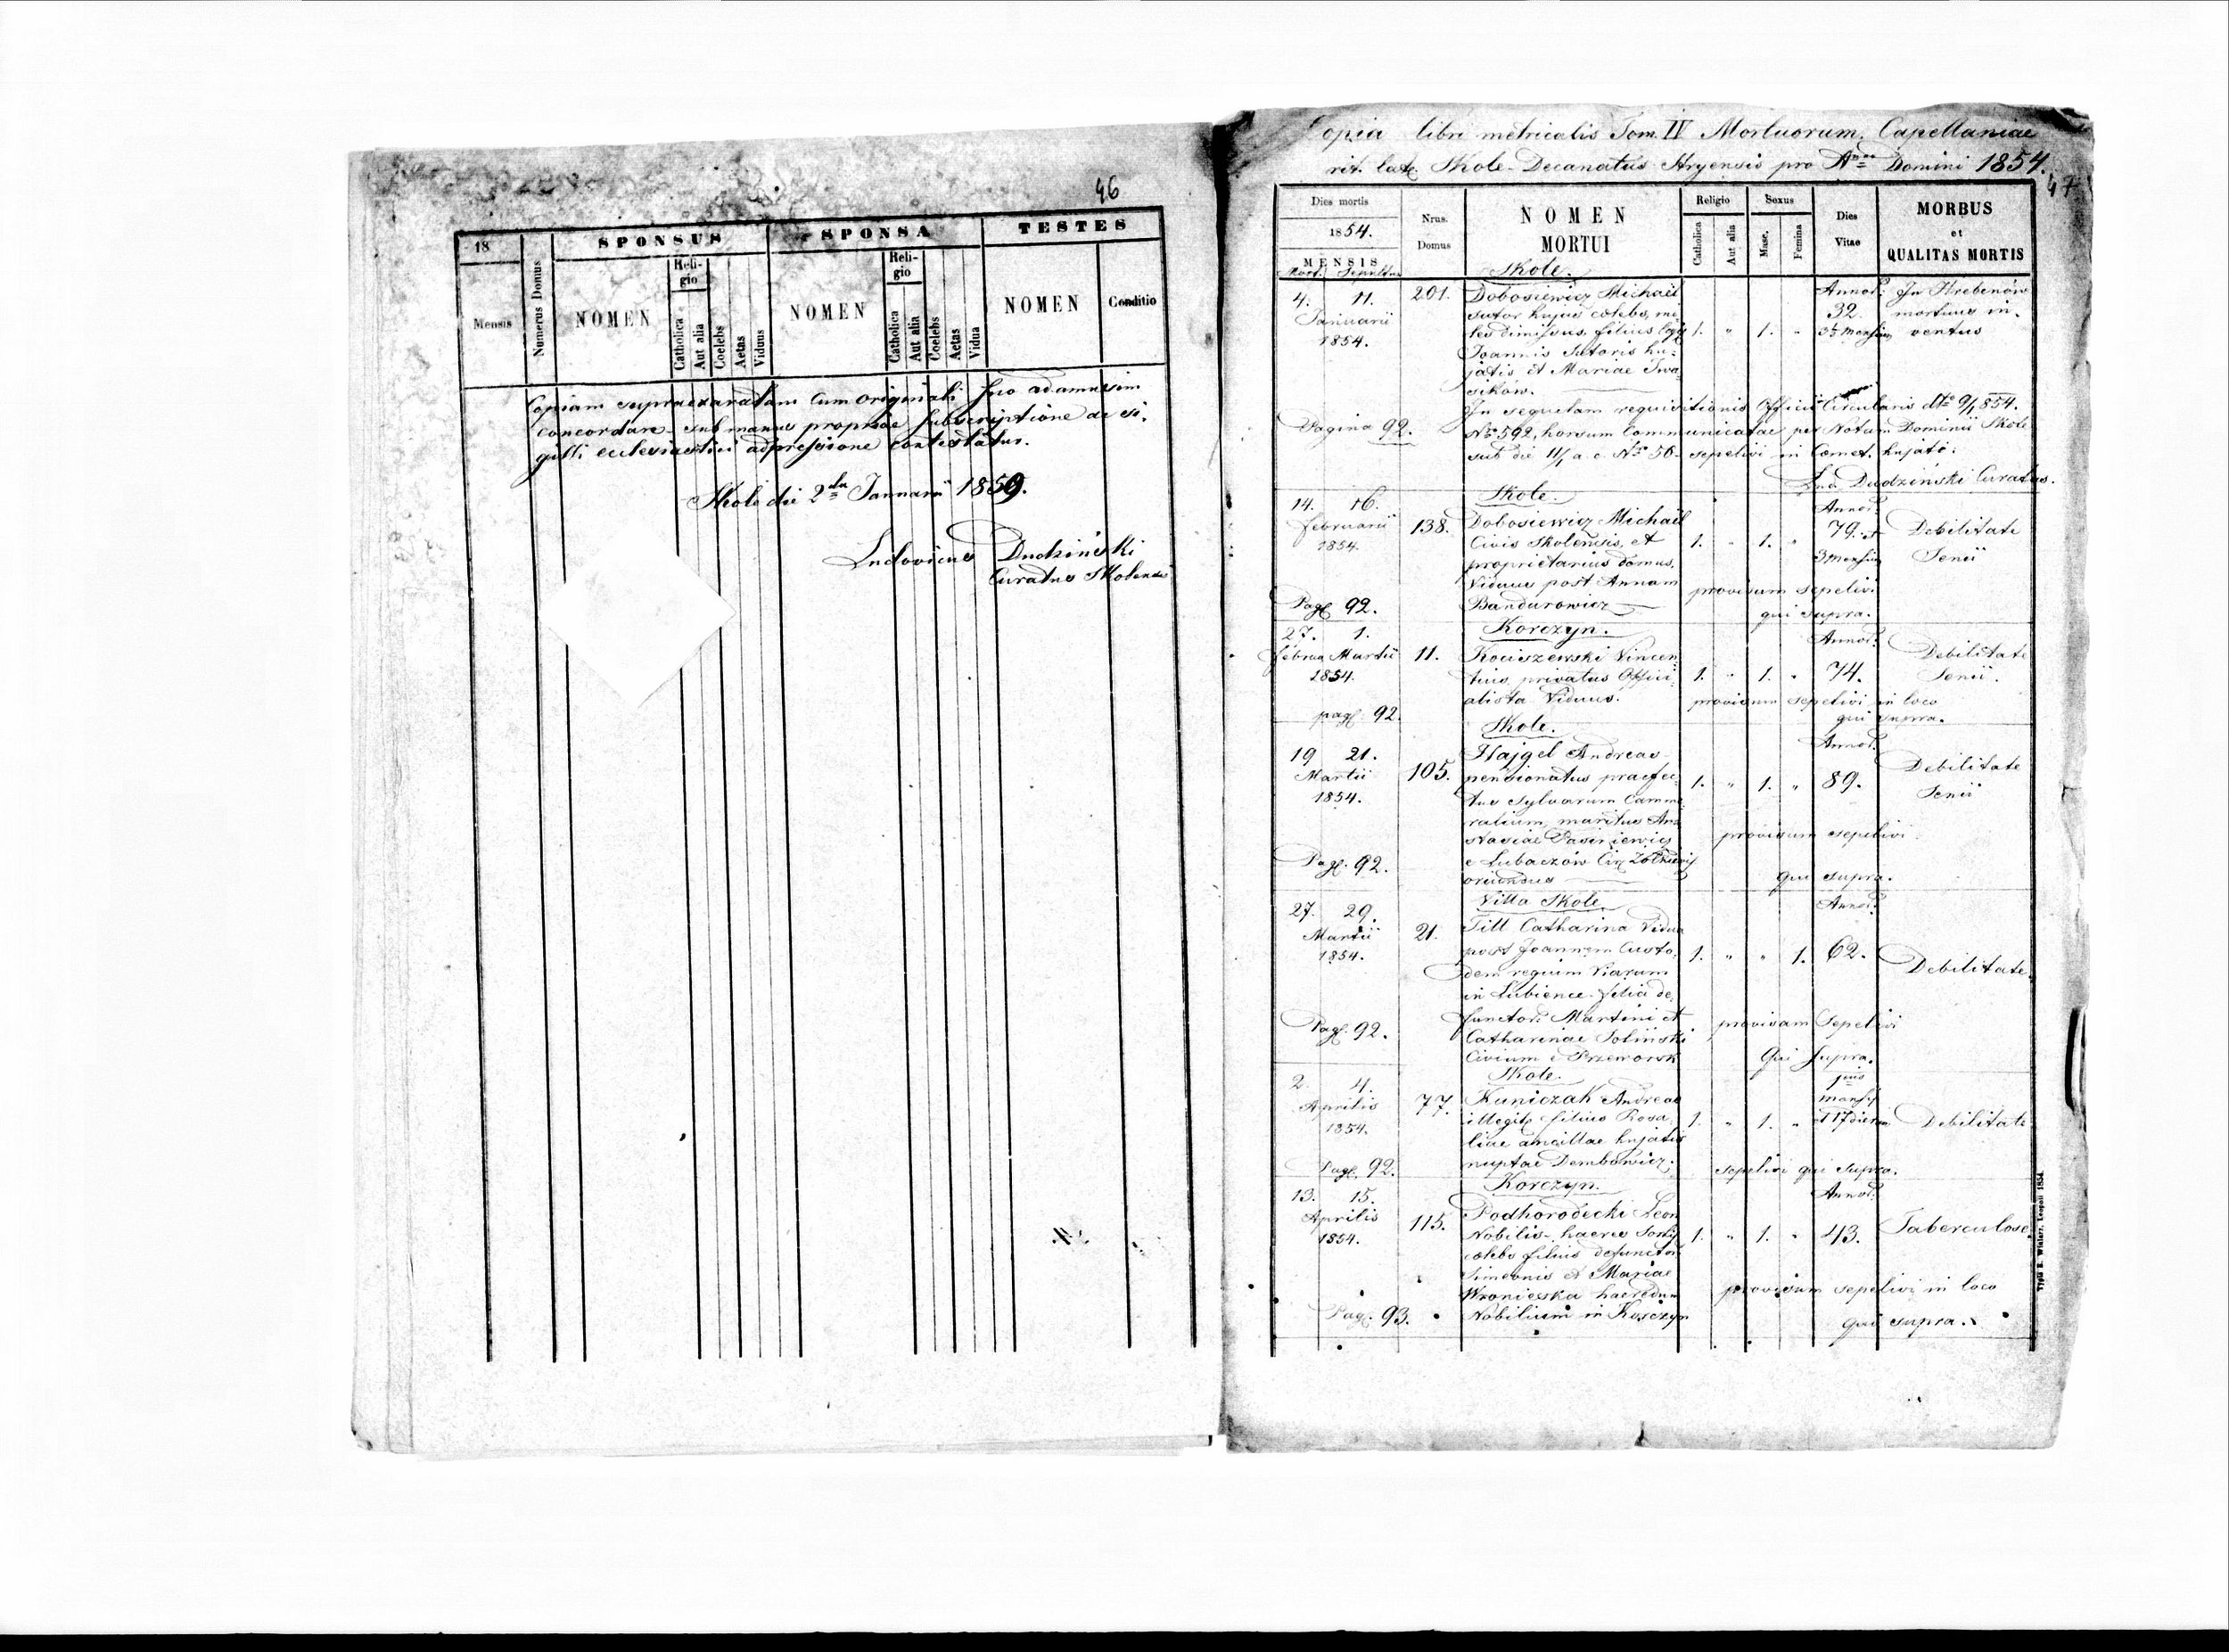 46
18
Mensis
Numerus Domus
SPONSUS
NOMEN
Reli-
gio
Catholica
Aut alia
Coelebs
Aetas
Viduus
SPONSA
NOMEN
Reli-
gio
Catholica
Aut alia
Coelebs
Aetas
Vidua
TESTES
NOMEN
Conditio
Copiam supraexaratam cum originali suo adamussim
concordare sub manus propriae subscriptione ac si-
gilli ecclesiastici adpressione contestatur.
Skole die 2da Januarii 1859.
Ludovicus Dudziński
Curatus Skolensis
Copia libri metricalis Tom. IV Mortuorum Capellaniae
rit. lat. Skole Decanatus Stryensis pro Anno Domini 1854.
47
Dies mortis
1854.
MENSIS
Mort. Sepultus
Nrus.
Domus
NOMEN
MORTUI
Religio
Catholica
Aut alia
Sexus
Masc.
Femina
Dies
Vitae
MORBUS
et
QUALITAS MORTIS
Skole.
4. 11. 201. Dobosiewicz Michael Annor. In Hrebenów
sutor hujus coelebs, mi- 32 mortuus in-
Januarii les dimissus, filius legit. 1. " 1. " et 3 mensium ventus
1854. Joannis Sutoris hu-
jatis et Mariae Iwa-
sików.
In sequelam requisitionis Officii Circularis dto 9/1 854.
Pagina 92. No 592, horsum communicatae per Notam Dominii Skole
sub die 11/1 a. c. No 56 sepelivi in Coemet. hujati:
Lud. Dudziński Curatus.
Skole.
14. 16. Annor.
Februarii 138. Dobosiewicz Michael 79. et Debilitate
1854. Civis Skolensis, et 1. " 1. " 3 mensium Senii
proprietarius domus,
Viduus post Annam provisum sepelivi
Pag. 92. Bandurowicz qui supra.
Korczyn.
27. 1. Annor.
Februa Martii 11. Kociszewski Vincen- Debilitate
1854. tius, privatus Offici- 1. " 1. " 74. Senii.
alista Viduus. provisum sepelivi in loco
pag. 92. qui supra.
Skole.
19 21. Hajgel Andreas Annor.
Martii 105. pensionatus praefec- 1. " 1. " 89. Debilitate
1854. tus sylvarum Came- Senii
ralium, maritus Ana-
stasiae provisum sepelivi
Pag. 92. e Lubaczów Circ. Zołkiew
oriundus qui supra.
Villa Skole
27. 29. Annor.
Martii 21. Till Catharina Vidua
1854. post Joannem Custo- 1. " " 1. 62. Debilitate
dem regium Viarum
in Lubience filia de-
functor. Martini et provisam sepelivi
Pag. 92. Catharinae Soliński
Civium e Przeworsk qui supra.
Skole.
2. 4. mensis
Aprilis 77. Kuniczak Andreas et 17 dierum
1854. illegit. filius Rosa- 1. " 1. " Debilitate
liae ancillae hujatis
Pag. 92. nuptae Dembowicz. sepelivi qui supra.
Korczyn.
13. 15. Annor.
Aprilis 115. Podhorodecki Leon
1854. Nobilis haeres Sortis 1. " 1. " 43. Tuberculose
coelebs filius defunctor.
Simeonis et Mariae
Wronieska haeredum provisum sepelivi in loco
Pag. 93. Nobilium in Korczyn qui supra.
Typis E. Winiarz, Leopoli 1854.